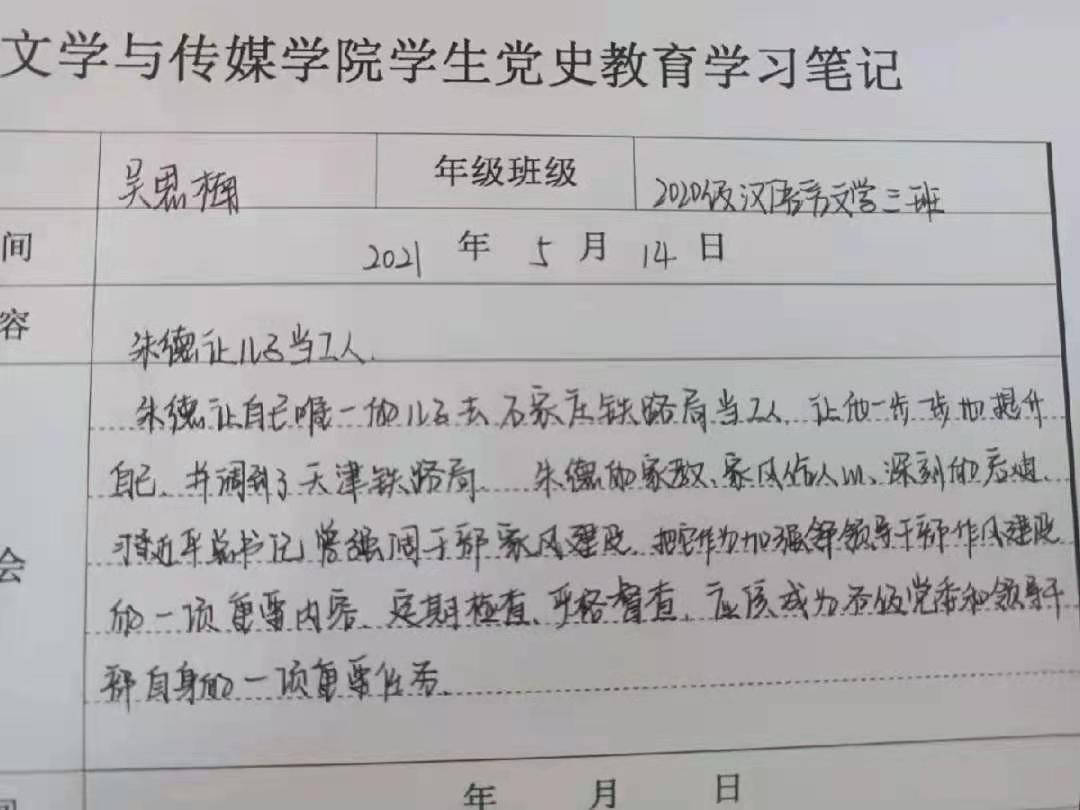 文学与传媒学院学生党史教育学习笔记
吴思楠 年级班级 2020级汉语言文学三班
间 2021 年 5 月 14 日
容 朱德让儿子当工人.
朱德让自己唯一的儿子去石家庄铁路局当工人, 让他一步一步地提升
自己, 并调到了天津铁路局. 朱德的家教、家风给人以深刻的启迪.
习近平总书记曾强调干部家风建设, 把它作为加强领导干部作风建设
会
的一项重要内容, 定期检查、严格督查, 应该成为各级党委和领导干
部自身的一项重要任务.
间 年 月 日